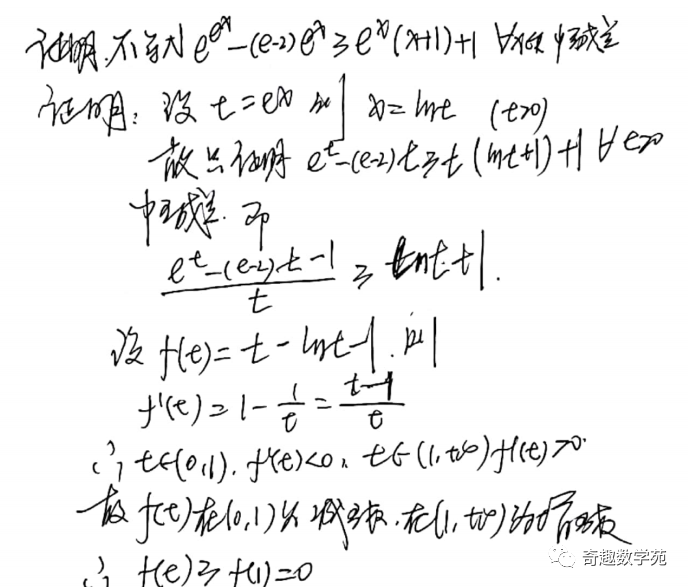 证明,不等式 e^{e^x}-(e-2)e^x≥e^x(x+1)+1 ∀x∈R 恒成立
证明:设 t=e^x 则 x=lnt (t>0)
故只证明 e^t-(e-2)t≥t(lnt+1)+1 ∀t>0
恒成立.即
\frac{e^t-(e-2)t-1}{t}≥lnt+1.
设 f(t)=t-lnt-1.则
f'(t)=1-\frac{1}{t}=\frac{t-1}{t}
∴ t∈(0,1), f'(t)<0, t∈(1,+∞) f'(t)>0.
故 f(t)在(0,1)为减函数,在(1,+∞)为增函数
∴ f(t)≥f(1)=0
奇趣数学苑